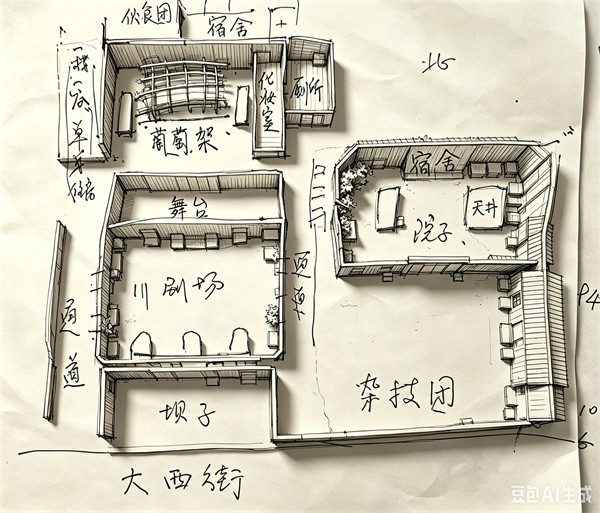 伙食团
宿舍
北
化妆室
厕所
葡萄架
宿舍
天井
院子
舞台
通道
川剧场
通道
杂技团
坝子
大西街
10
豆包AI生成